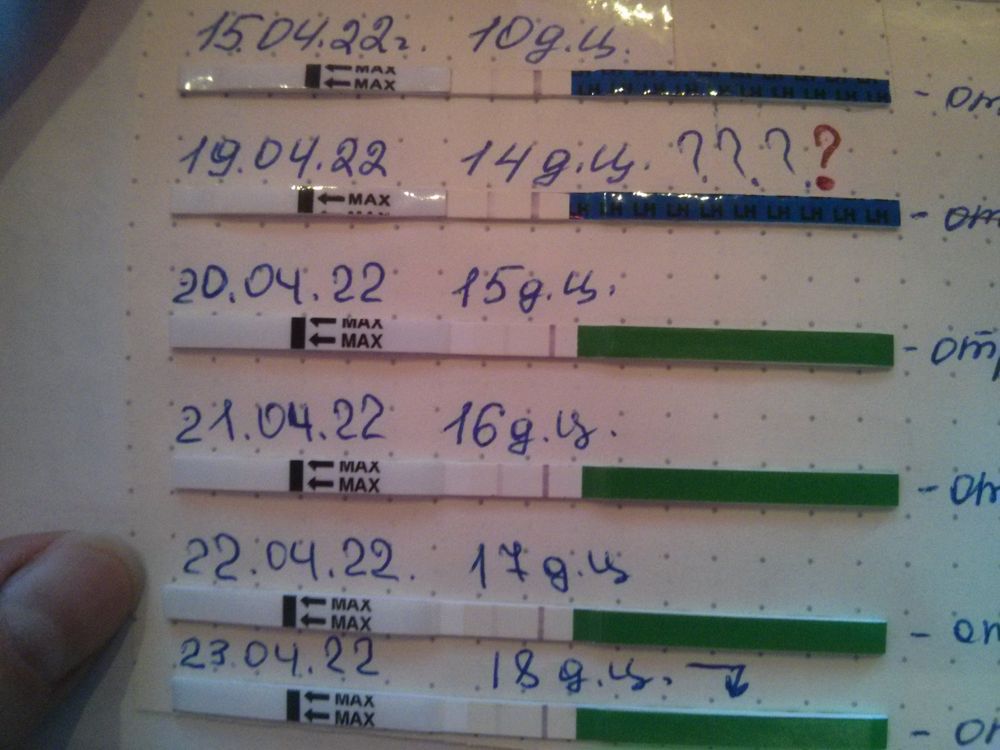 15.04.22г. 10 д.ц.
MAX
MAX
LH LH LH LH LH LH LH LH LH LH - от
19.04.22 14 д.ц. ????
MAX
LH LH LH LH LH LH LH LH LH LH - от
20.04.22 15 д.ц.
MAX
MAX
- отр
21.04.22 16 д.ц.
MAX
MAX
- от
22.04.22. 17 д.ц
MAX
MAX
- от
23.04.22 18 д.ц.
MAX
MAX
- от